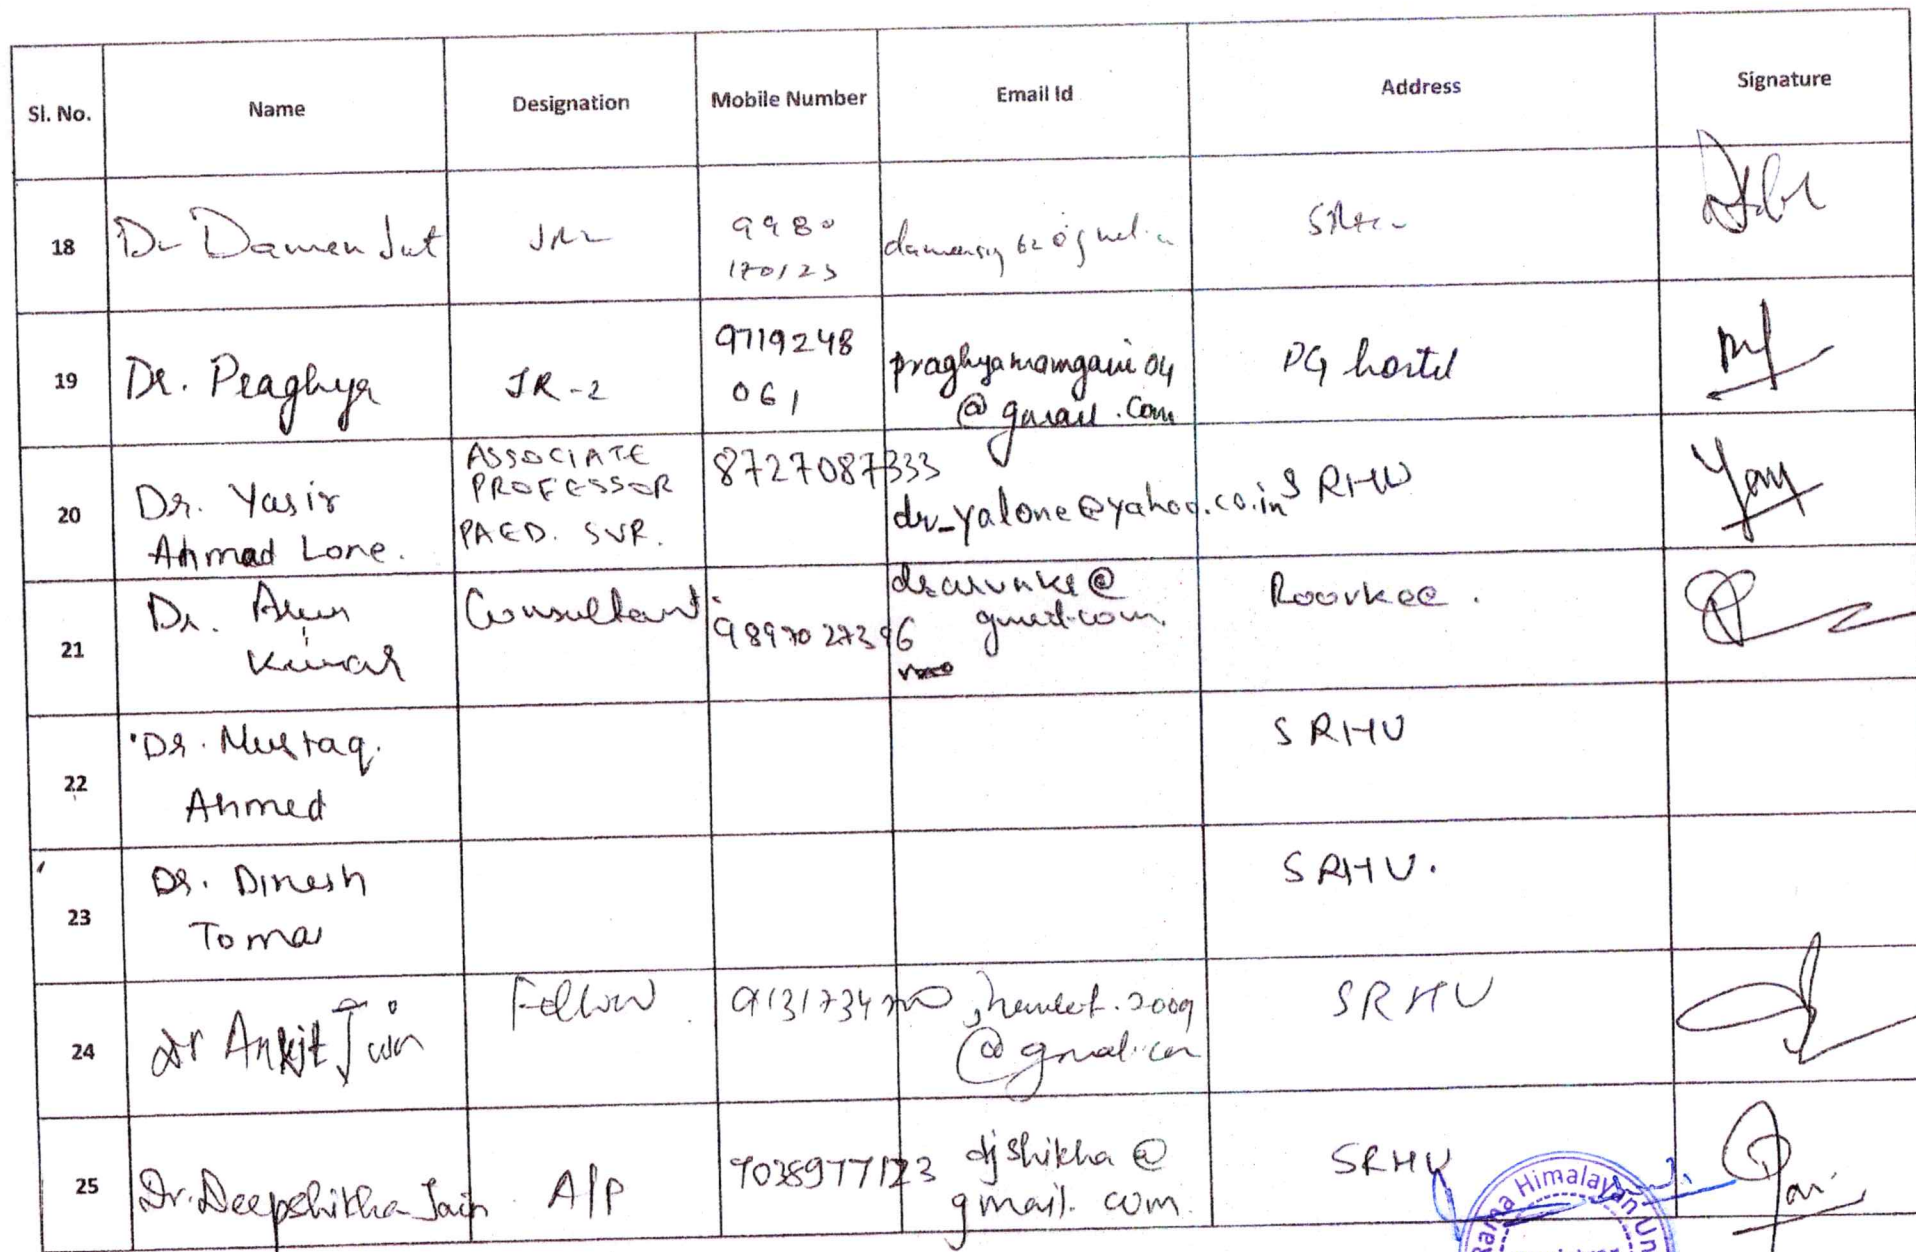 Sl. No. Name Designation Mobile Number Email Id Address Signature
18 Dr Damen JR2 9980
170123
19 Dr. Praghya JR-2 9719248
061 praghyamamgain04
@gmail.com PG hostel
20 Dr. Yasir
Ahmad Lone. ASSOCIATE
PROFESSOR
PAED. SUR. 8727087333 dr_yalone@yahoo.co.in SRHU
21 Dr. Arun
Kumar Consultant 9897027396 drarunkr@
gmail.com Roorkee.
22 Dr. Mustaq.
Ahmed SRHU
23 Dr. Dinesh
Tomar SRHU.
24 Dr Ankit Jain Fellow @gmail.com SRHU
25 Dr. Deepshikha Jain A/P djshikha@
gmail.com. SRHU
Rama Himalayan Un